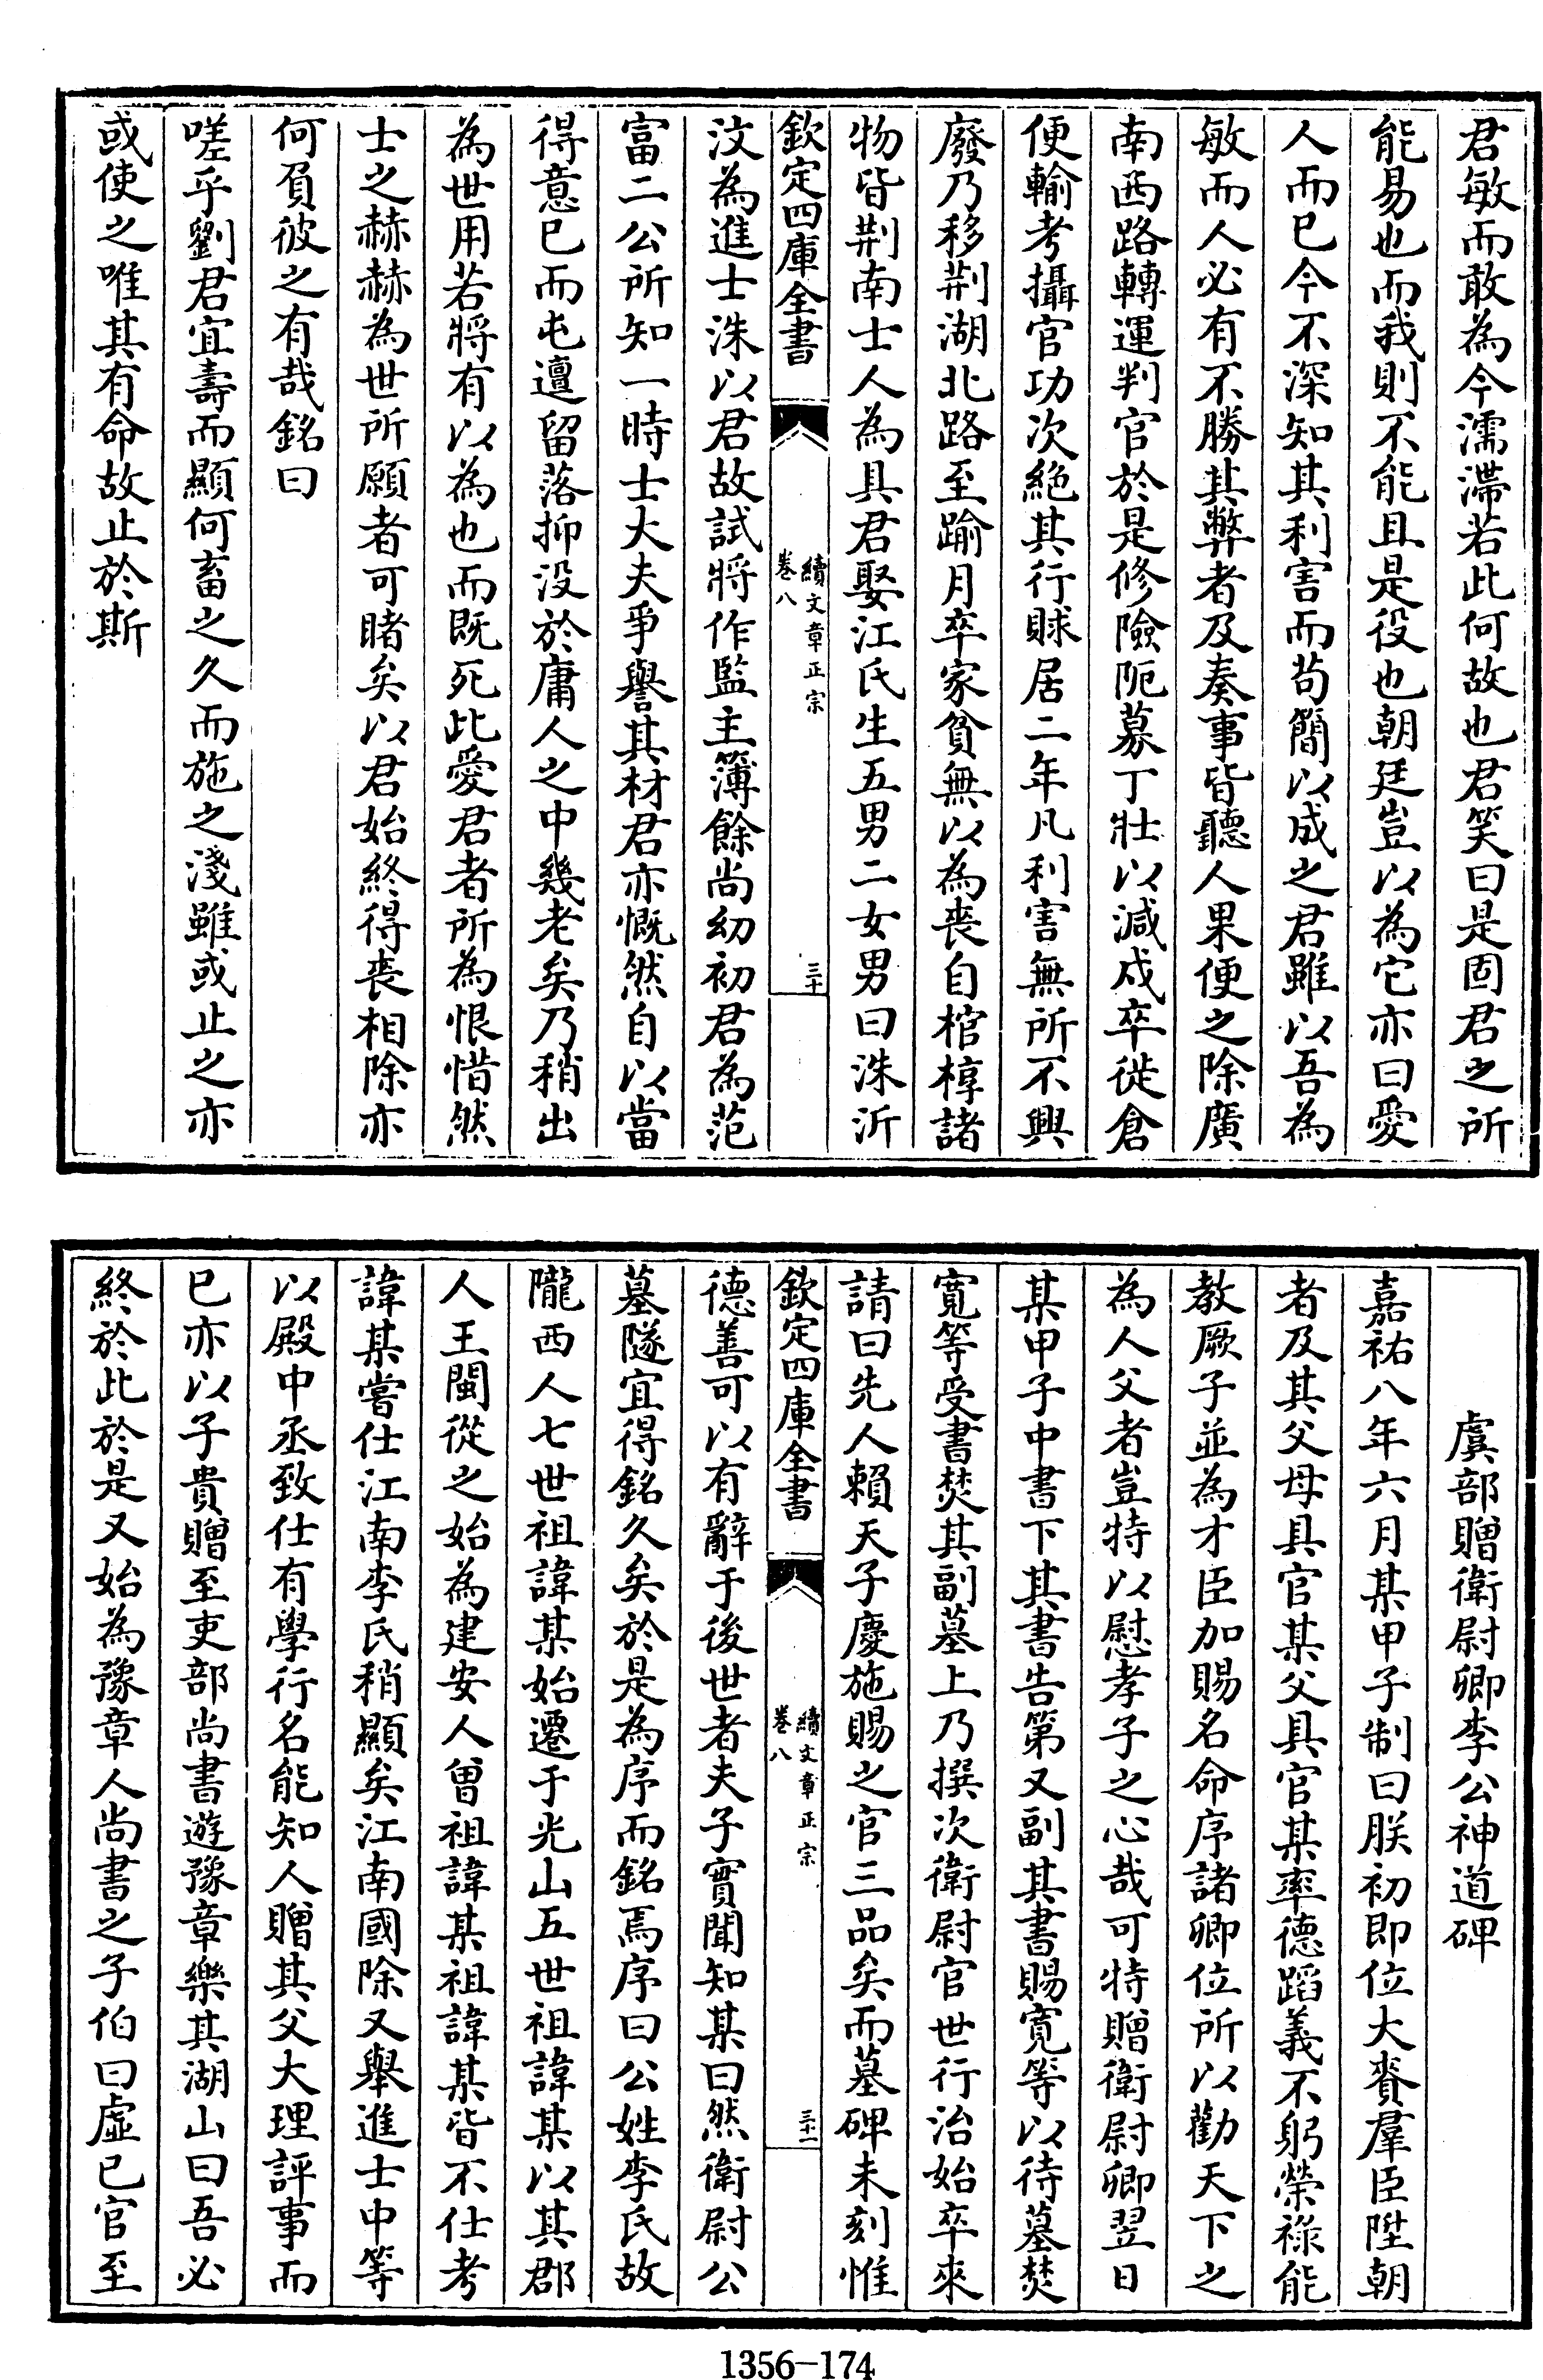 君敏而敢為今濡滯若此何故也君笑曰是固君之所
能易也而我則不能且是役也朝廷豈以為它亦曰愛
人而已今不深知其利害而茍簡以成之君雖以吾為
敏而人必有不勝其弊者及奏事皆聽人果便之除廣
南西路轉運判官於是修險阨募丁壯以減戍卒徙倉
便輸考攝官功次絶其行賕居二年凡利害無所不興
廢乃移荆湖北路至踰月卒家貧無以為喪自棺椁諸
物皆荆南士人為具君娶江氏生五男二女男曰洙沂
欽定四庫全書
續文章正宗
卷八
三十
汶為進士洙以君故試將作監主簿餘尚幼初君為范
富二公所知一時士大夫爭譽其材君亦慨然自以當
得意已而屯邅留落抑没於庸人之中幾老矣乃稍出
為世用若將有以為也而既死此愛君者所為恨惜然
士之赫赫為世所願者可睹矣以君始終得喪相除亦
何負彼之有哉銘曰
嗟乎劉君宜壽而顯何畜之久而施之淺雖或止之亦
或使之唯其有命故止於斯
虞部贈衛尉卿李公神道碑
嘉祐八年六月某甲子制曰朕初即位大賚羣臣陞朝
者及其父母具官某父具官某率德蹈義不躬榮祿能
教厥子並為才臣加賜名命序諸卿位所以勸天下之
為人父者豈特以慰孝子之心哉可特贈衛尉卿翌日
某甲子中書下其書告第又副其書賜寛等以待墓焚
寛等受書焚其副墓上乃撰次衛尉官世行治始卒來
請曰先人賴天子慶施賜之官三品矣而墓碑未刻惟
欽定四庫全書
續文章正宗
卷八
三十一
德善可以有辭于後世者夫子實聞知某曰然衛尉公
墓隧宜得銘久矣於是為序而銘焉序曰公姓李氏故
隴西人七世祖諱某始遷于光山五世祖諱某以其郡
人王閩從之始為建安人曾祖諱某祖諱某皆不仕考
諱某嘗仕江南李氏稍顯矣江南國除又舉進士中等
以殿中丞致仕有學行名能知人贈其父大理評事而
已亦以子貴贈至吏部尚書遊豫章樂其湖山曰吾必
終於此於是又始為豫章人尚書之子伯曰虚已官至
1356-174